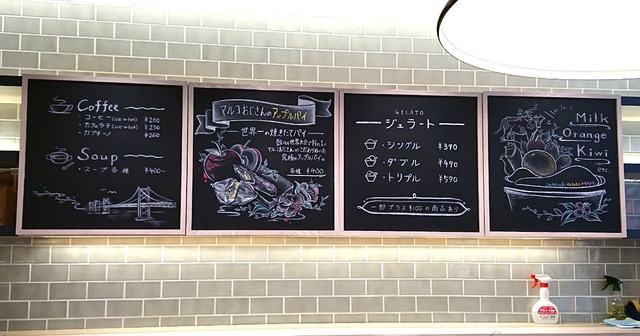 Coffee
・コーヒー(ice or hot) ¥200
・カフェラテ(ice or hot) ¥250
・カプチーノ ¥260
Soup
・スープ各種 ¥400-
マルコおじさんのアップルパイ
世界一の焼きたてパイ
各種 ¥400
GELATO
ジェラート
・シングル ¥390
・ダブル ¥490
・トリプル ¥590
一部プラス¥100の商品あり
Milk
Orange
Kiwi
etc.